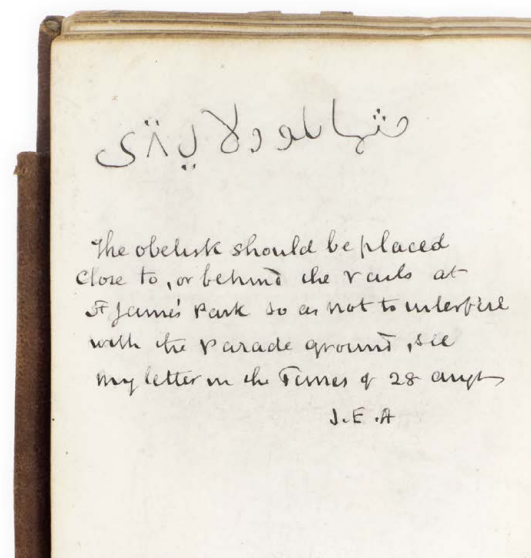 The obelisk should be placed
close to, or behind the rails at
St James' Park so as not to interfere
with the Parade ground, see
my letter in the Times of 28 augt
J.E.A